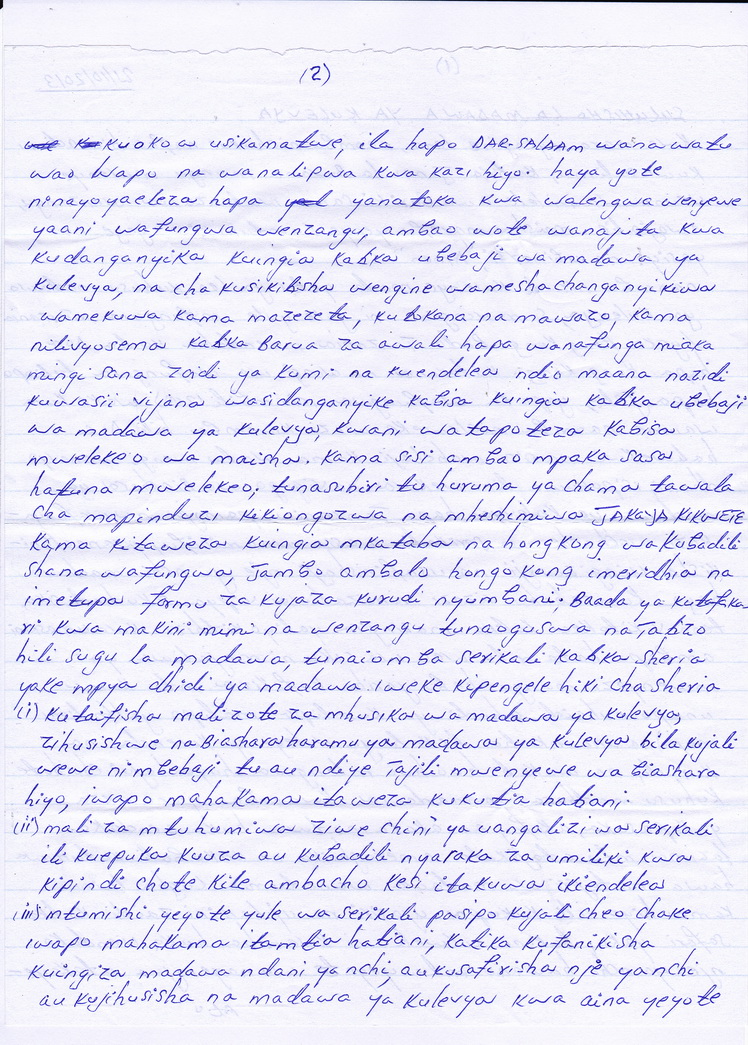 (2)
kuokoa usikamatwe, ila hapo DAR-SALAAM wana watu
wao wapo na wanalipwa kwa kazi hiyo. haya yote
ninayoyaeleza hapa yanatoka kwa walengwa wenyewe
yaani wafungwa wenzangu, ambao wote wanajuta kwa
kudanganyika kuingia katika ubebaji wa madawa ya
kulevya, na cha kusikitisha wengine wameshachanganyikiwa
wamekuwa kama mazezeta, kutokana na mawazo, kama
nilivyosema katika Barua za awali hapa wanafunga miaka
mingi sana zaidi ya kumi na kuendelea ndio maana nazidi
kuwasii vijana wasidanganyike kabisa kuingia katika ubebaji
wa madawa ya kulevya, kwani watapoteza kabisa
mwelekeo wa maisha. kama sisi ambao mpaka sasa
hatuna mwelekeo; tunasubiri tu huruma ya chama tawala
cha mapinduzi kikiongozwa na mheshimiwa JAKAJA KIKWETE
kama kitaweza kuingia mkataba na hongkong wa kubadili
shana wafungwa, Jambo ambalo hongokong imeridhia na
imetupa formu za kujaza kurudi nyumbani. Baada ya kutafika
ri kwa makini mimi na wenzangu tunaoguswa na Tatizo
hili sugu la madawa, tunaiomba serikali katika sheria
yake mpya dhidi ya madawa iweke kipengele hiki cha sheria
(i) kutaifisha mali zote za mhusika wa madawa ya kulevya,
zihusishwe na Biashara haramu ya madawa ya kulevya bila kujali
wewe ni mbebaji tu au ndiye Tajili mwenyewe wa biashara
hiyo, iwapo mahakama itaweza kukutia hatiani.
(ii) mali za mtuhumiwa ziwe chini ya uangalizi wa serikali
ili kuepuka kuuza au kubadili nyaraka za umiliki kwa
kipindi chote kile ambacho kesi itakuwa ikiendelea
(iii) mtumishi yeyote yule wa serikali pasipo kujali cheo chake
iwapo mahakama itamtia hatiani, katika kufanikisha
kuingiza madawa ndani ya nchi, au kusafirisha nje ya nchi
au kujihusisha na madawa ya kulevya kwa aina yeyote